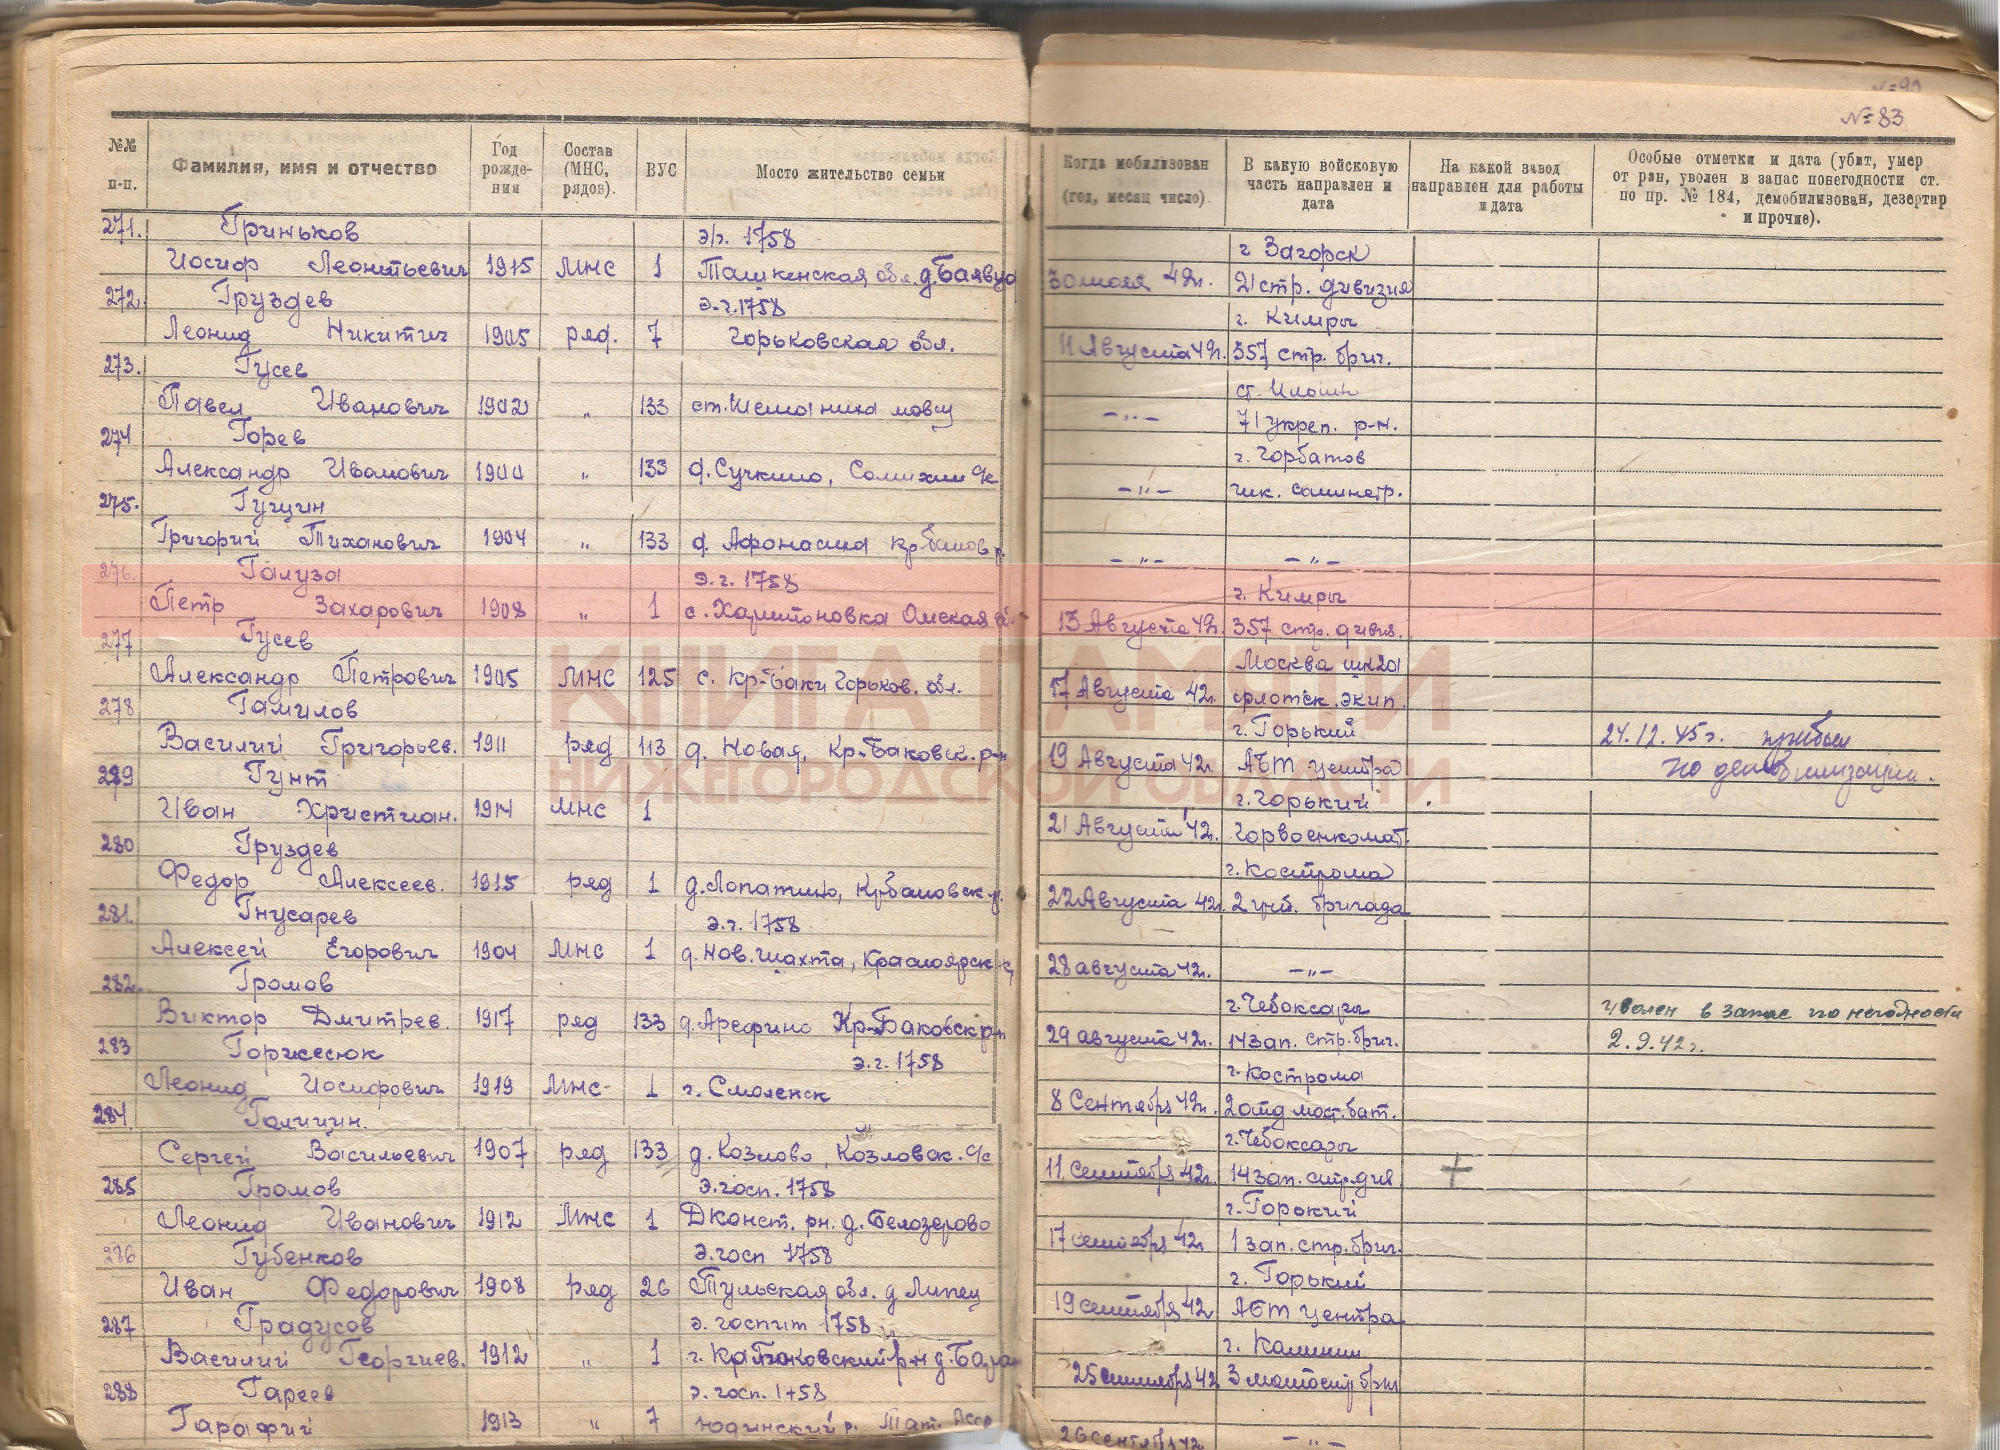 № 83
№№ п-п.
Фамилия, имя и отчество
Год рожде-
ния
Состав
(МНС,
рядов).
ВУС
Мосто жительство семьи
Когда мобилизован
(год, месяц число).
В какую войсковую
часть направлен и
дата
На какой завод
направлен для работы
и дата
Особые отметки и дата (убит, умер
от ран, уволен в запас понегодности ст.
по пр. № 184, демобилизован, дезертир
и прочие).
271. Гриньков э/г. 1758 г Загорск
Иосиф Леонтьевич 1915 МНС 1 обл. 42г. 21 стр. дивизия
272. Груздев э.г. 1758 г. Кимры
Леонид Никитич 1905 ряд. 7 Горьковская обл. 11 Августа 42г. 357 стр. бриг.
273. Гусев ст.
Павел Иванович 1902 " 133 ст. -"- 71 укреп. р-н.
274 Горев г. Горбатов
Александр Иванович 1900 " 133 д. Сучкино, с/с -"-
275. Гущин
Григорий Тиханович 1904 " 133 д. -"- -"-
276. Галуза э.г. 1758 г. Кимры
Петр Захарович 1908 " 1 с. Харитоновка Омская обл. 13 Августа 42г. 357 стр. дивиз.
277 Гусев Москва
Александр Петрович 1905 МНС 125 с. Кр-Баки Горьков. обл. 17 Августа 42г. флотск. экип.
278 Гамилов г. Горький 24.12.45г. прибыл
Василий Григорьев. 1911 ряд 113 д. Новая, Кр-Баковск. р-н 19 Августа 42г. АБТ центра по демобилизации.
279 Гунт г. Горький
Иван Христиан. 1914 МНС 1 21 Августа 42г. Горвоенкомат.
280 Груздев г. Кострома
Федор Алексеев. 1915 ряд 1 д. Лопатино, 22 Августа 42г. 2 уч. бригада
281. Гнусарев э.г. 1758
Алексей Егорович 1904 МНС 1 д. Нов. шахта, 28 августа 42г. -"-
282. Громов г. Чебоксары уволен в запас по негодности
Виктор Дмитрев. 1917 ряд 133 д. Арефино Кр-Баковск р-н 29 августа 42г. 14 зап. стр. бриг. 2.9.42г.
283 э.г. 1758 г. Кострома
Леонид Иосифович 1919 МНС- 1 г. Смоленск 8 Сентября 42г. 2 отд мост. бат.
284. Галицин. г. Чебоксары
Сергей Васильевич 1907 ряд 133 д. Козлово, Козловск. с/с 11 сентября 42г. 14 зап. стр. див +
285 Громов э.госп. 1758 г. Горький
Леонид Иванович 1912 МНС 1 Дконст. рн. д. Белозерово 17 сентября 42г. 1 зап. стр. бриг.
286 Губенков э.госп 1758 г. Горький
Иван Федорович 1908 ряд 26 Тульская обл. д Липец 19 сентября 42 АБТ центра
287 Градусов э. госпит 1758 г. Калинин
Василий Георгиев. 1912 " 1 25 сентября 42
288 Гареев э. госп. 1758
Гарафий 1913 " 7 р. Тат. Асср 26 сентября 42 -"-
КНИГА ПАМЯТИ
НИЖЕГОРОДСКОЙ ОБЛАСТИ